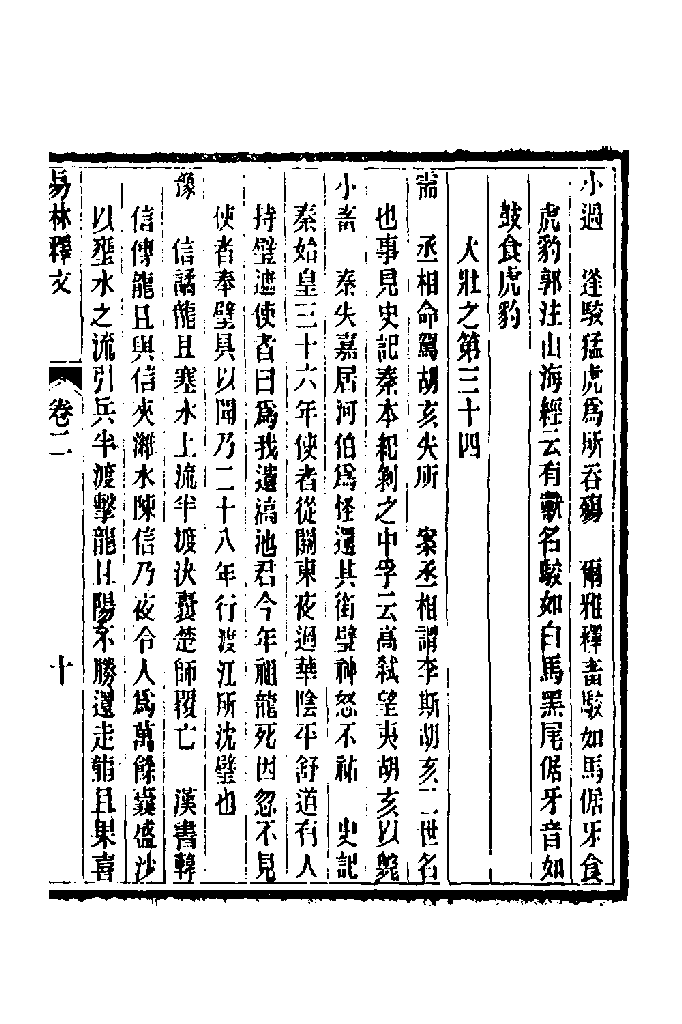 小過　逢駮猛虎爲所吞殤　爾雅釋畜駮如馬倨牙食
虎豹郭注山海經云有獸名駮如白馬黑尾倨牙音如
鼓食虎豹
大壯之第三十四
需　丞相命駕胡亥失所　案丞相謂李斯胡亥二世名
也事見史記秦本紀剝之中孚云高弒望夷胡亥以斃
小畜　秦失嘉居河伯爲怪還其街璧神怒不祐　史記
秦始皇三十六年使者從關東夜過華陰平舒道有人
持璧遮使者曰爲我遺滈池君今年祖龍死因忽不見
使者奉璧具以聞乃二十八年行渡江所沈璧也
豫　信譎龍且塞水上流半渡決囊楚師覆亡　漢書韓
信傳龍且與信夾濰水陳信乃夜令人爲萬餘囊盛沙
以壅水之流引兵半渡擊龍且陽不勝還走龍且果喜
易林釋文　卷二　十